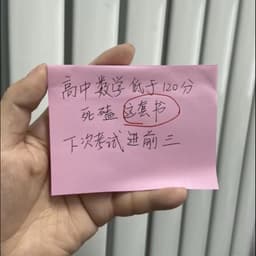 高中数学低于120分
死磕这套书
下次考试进前三